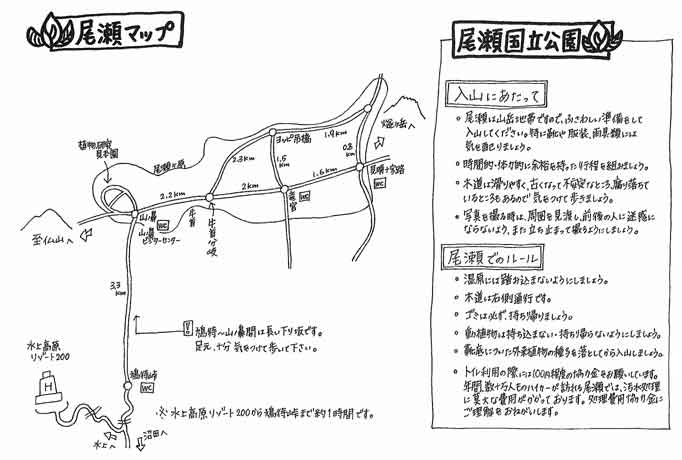 尾瀬マップ
植物研究
見本園
尾瀬ヶ原
ヨッピ吊橋
1.9km
燧ヶ岳へ
2.3km
1.5
km
0.8
km
見晴十字路
WC
1.6km
2km
2.2km
竜宮
WC
牛首
牛首分岐
山ノ鼻
WC
山ノ鼻
ビジターセンター
至仏山へ
3.3
km
鳩待〜山ノ鼻間は長い下り坂です。
足元、十分気をつけて歩いて下さい。
水上高原
リゾート200
H
鳩待峠
WC
※水上高原リゾート200から鳩待峠まで約1時間です。
水上へ
沼田へ
尾瀬国立公園
入山にあたって
・尾瀬は山岳地帯ですので、ふさわしい準備をして
入山してください。特に靴や服装、雨具類には
気を配りましょう。
・時間的・体力的に余裕を持った行程を組みましょう。
・木道は滑りやすく、古くなって不安定なところ、腐り落ちて
いるところもあるので気をつけて歩きましょう。
・写真を撮る時は、周囲を見渡し、前後の人に迷惑に
ならないよう、また立ち止まって撮るようにしましょう。
尾瀬でのルール
・湿原には踏み込まないようにしましょう。
・木道は右側通行です。
・ゴミは必ず、持ち帰りましょう。
・動植物は持ち込まない・持ち帰らないようにしましょう。
・靴底についた外来植物の種子を落としてから入山しましょう。
・トイレ利用の際には100円程度の協力金をお願いしています。
年間、数十万人ものハイカーが訪れる尾瀬では、汚水処理
に莫大な費用がかかっております。処理費用協力金に
ご理解をおねがいします。